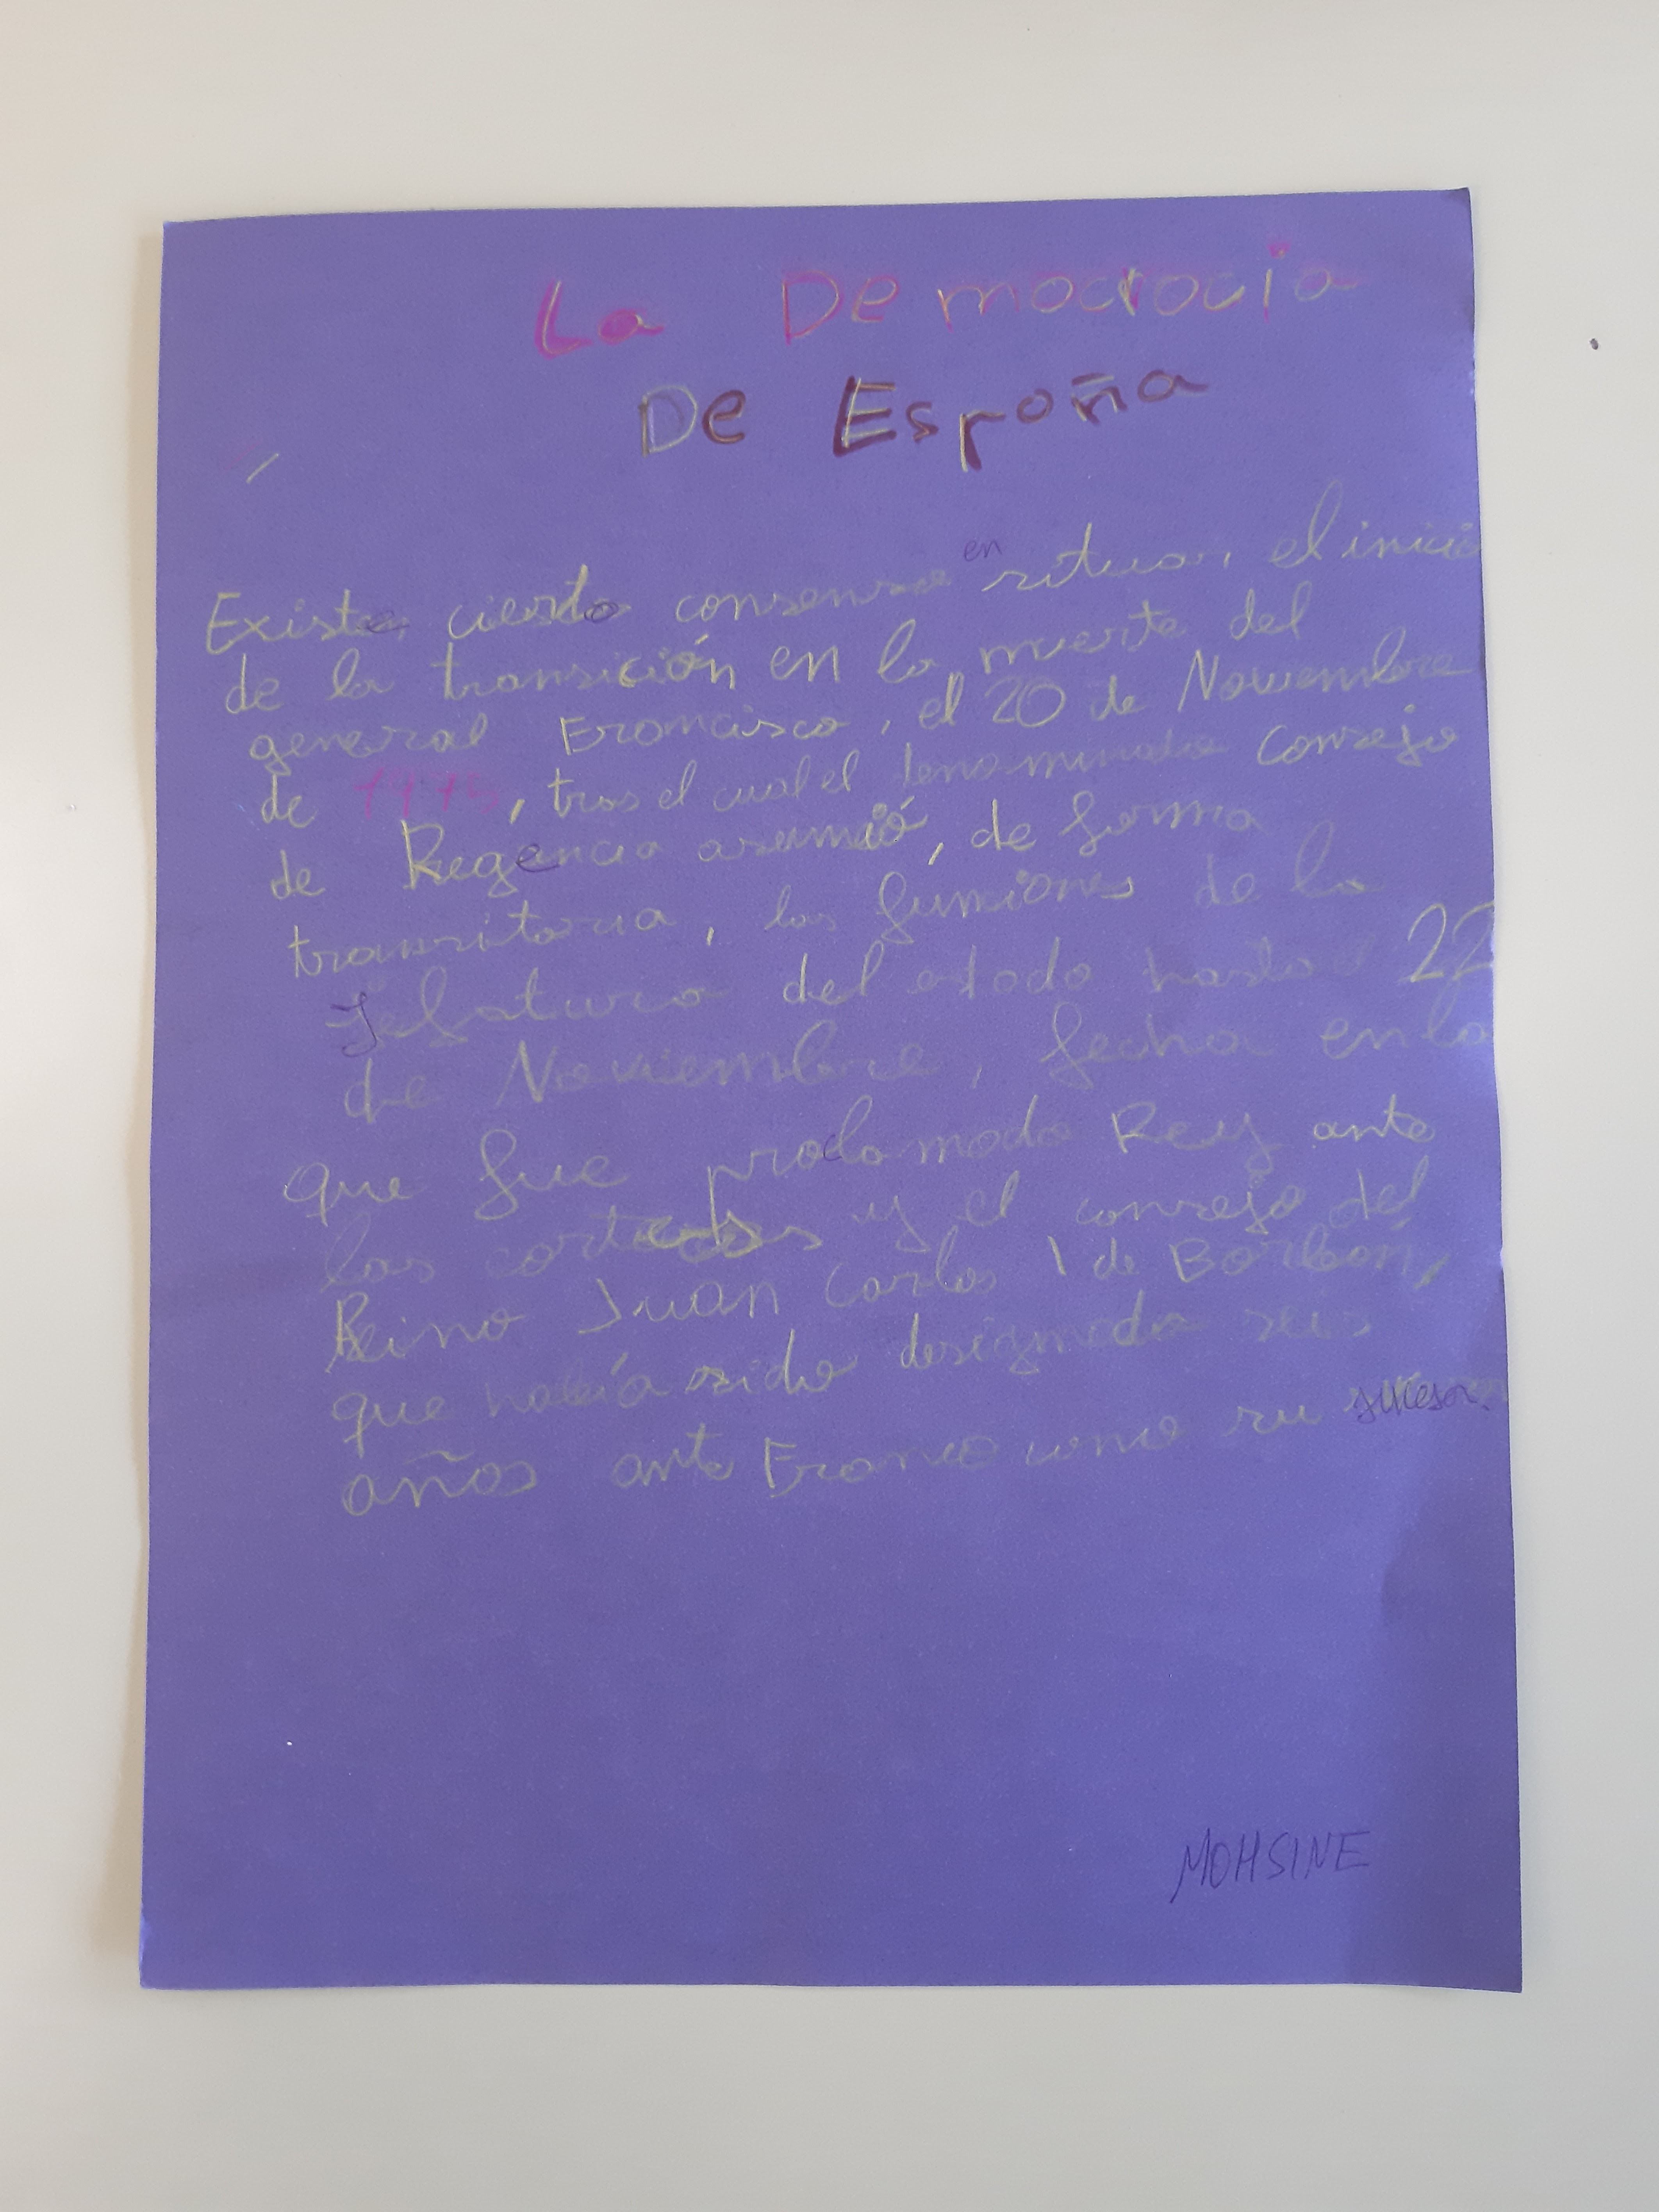 La Democracia
De España
Existe cierto consenso en situar, el inicio
de la transición en la muerte del
general Francisco, el 20 de Noviembre
de 1975, tras el cual el denominado Consejo
de Regencia asumió, de forma
transitoria, las funciones de la
Jefatura del estado hasta el 22
de Noviembre, fecha en la
que fue proclamado Rey ante
las cortes y el consejo del
Reino Juan Carlos I de Borbón,
que había sido designado seis
años ante Franco como su sucesor.
MOHSINE